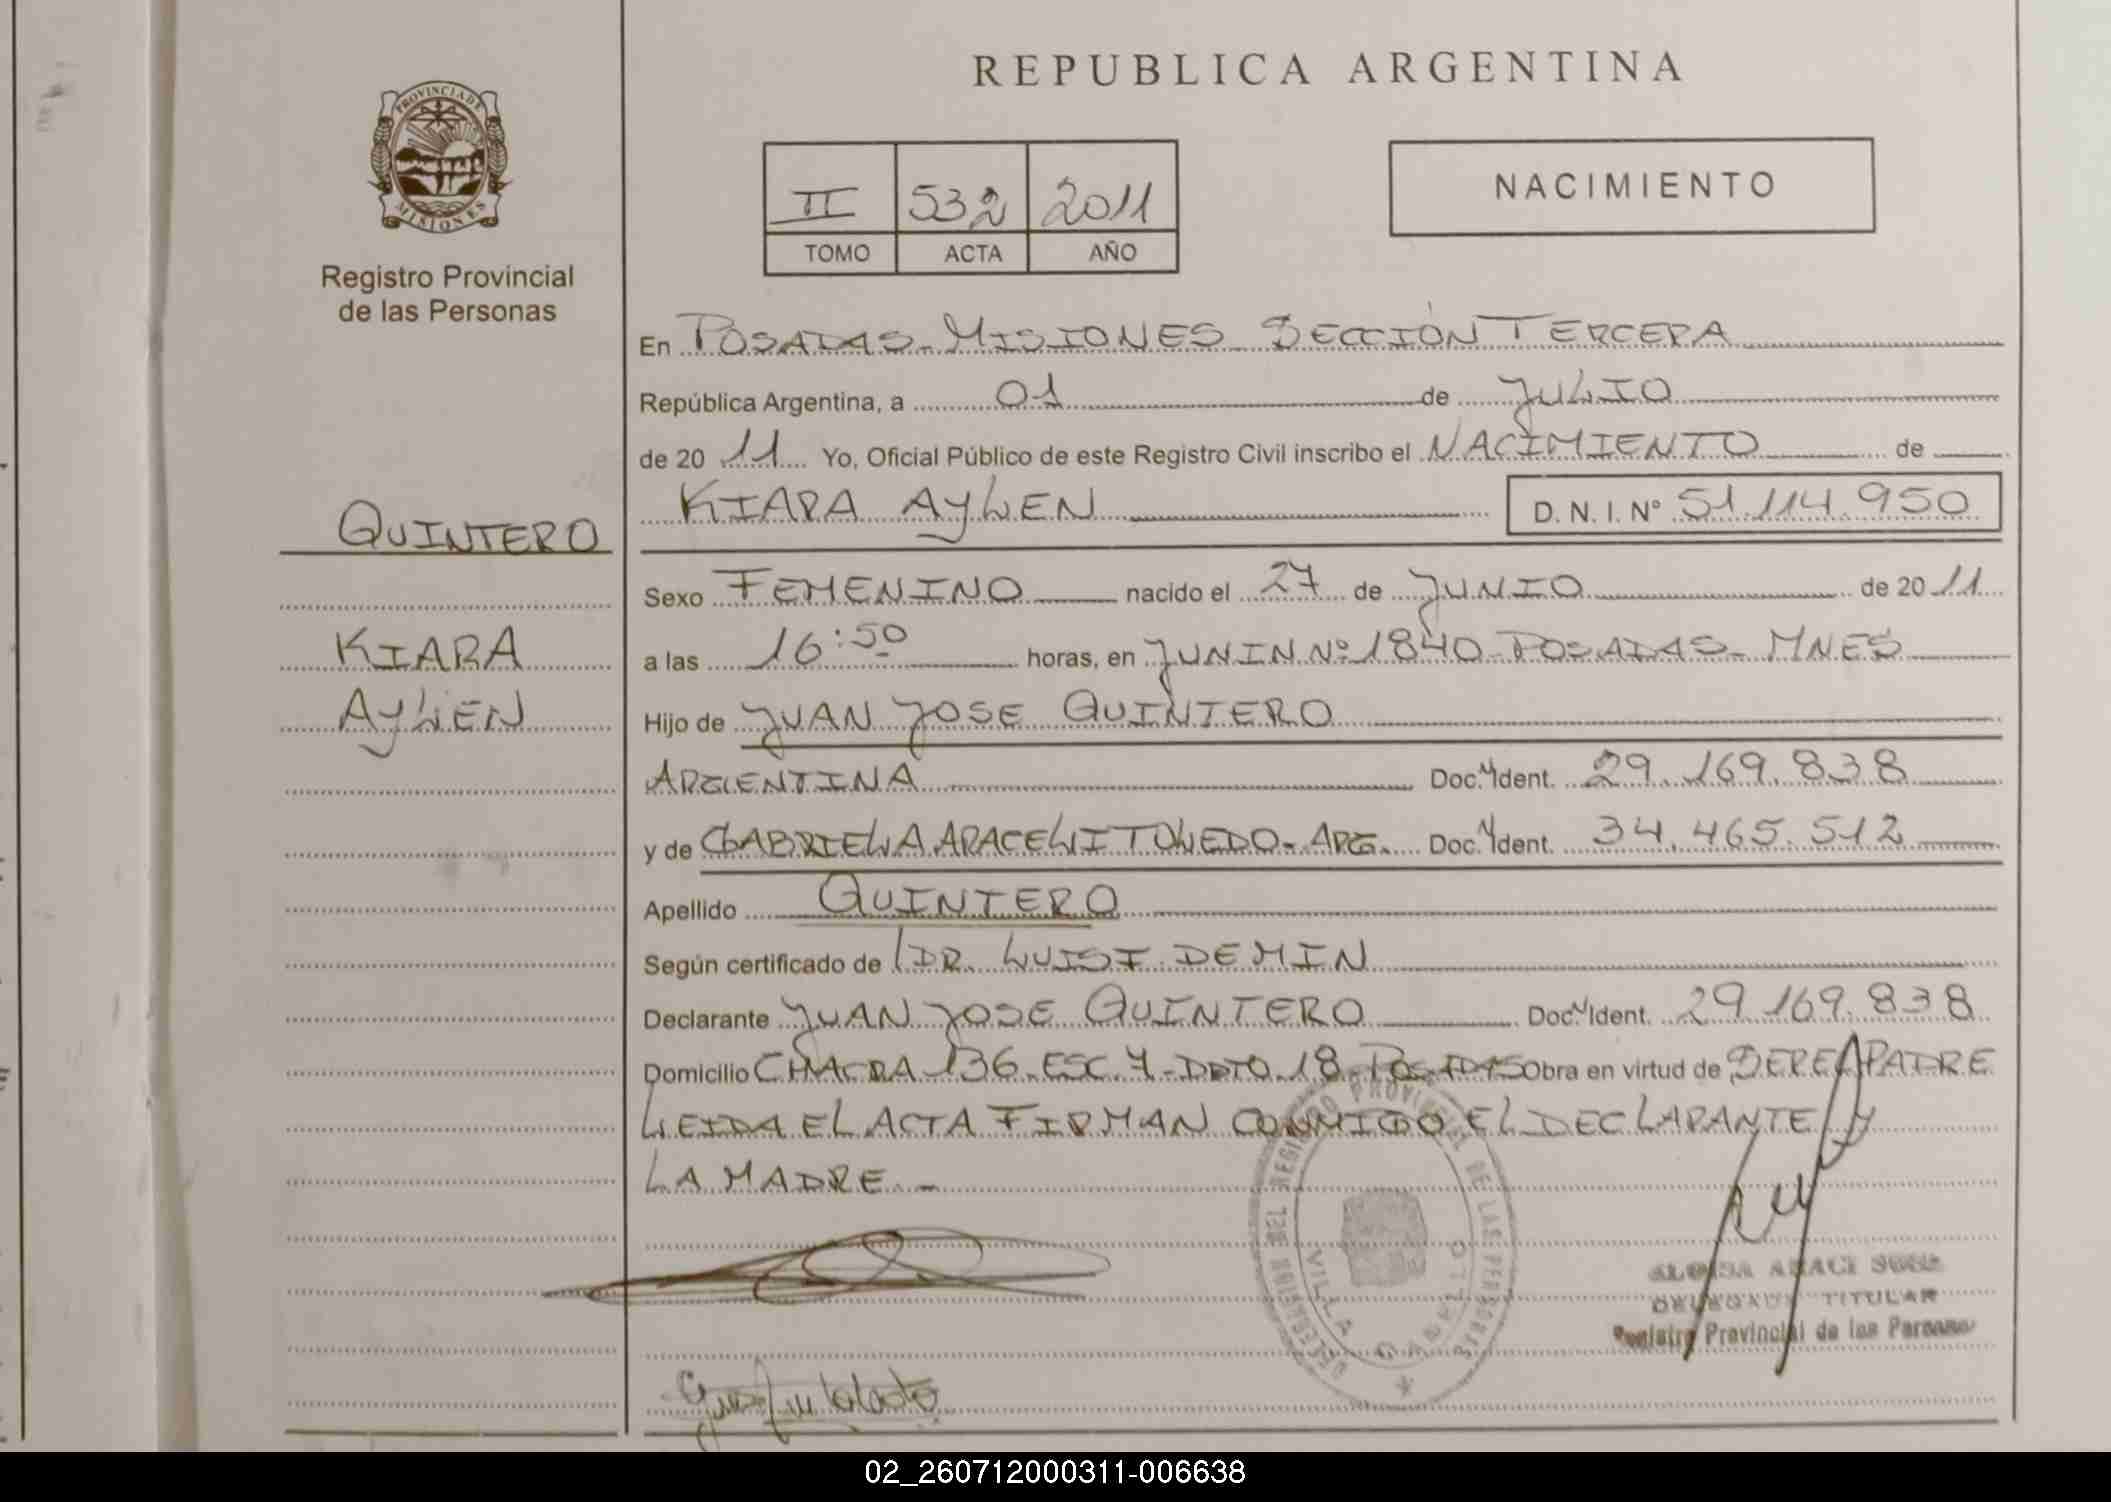 REPUBLICA ARGENTINA
PROVINCIA DE
MISIONES
Registro Provincial
de las Personas
II 532 2011
TOMO ACTA AÑO
NACIMIENTO
En POSADAS-MISIONES SECCIÓN TERCERA
República Argentina, a 01 de JULIO
de 20 11 Yo, Oficial Público de este Registro Civil inscribo el NACIMIENTO de
KIARA AYLEN D.N.I. Nº 51.114.950
QUINTERO
KIARA
AYLEN
Sexo FEMENINO nacido el 27 de JUNIO de 20 11
a las 16:50 horas, en JUNIN Nº 1840-POSADAS-MNES
Hijo de JUAN JOSE QUINTERO
ARGENTINA Doc. Ident. 29.169.838
y de GABRIELA ARACELI TOLEDO-ARG. Doc. Ident. 34.465.512
Apellido QUINTERO
Según certificado de DR. LUIS I. DEMIN
Declarante JUAN JOSE QUINTERO Doc. Ident. 29.169.838
Domicilio CHACRA 136-ESC.7-DPTO 18-POSADAS Obra en virtud de SER EL PADRE
LEIDA EL ACTA FIRMAN CONMIGO EL DECLARANTE Y
LA MADRE.-
DELEGACION DEL REGISTRO PROVINCIAL DE LAS PERSONAS
VILLA
TITULAR
Registro Provincial de las Personas
02_260712000311-006638